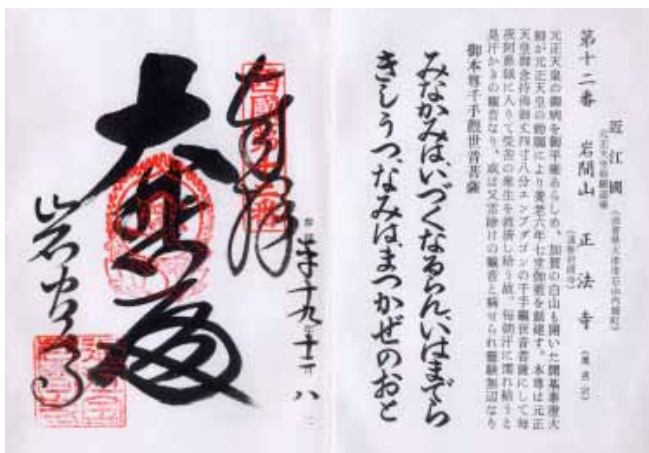 近江國
第十二番 岩間山 正法寺
元正天皇の御病を御平癒あらしめ、加賀の白山も開いた開基泰澄大
師が元正天皇の勅願により養老六年七堂伽藍を創建す。本尊は元正
天皇御念持佛御丈四寸八分エンブダゴンの千手觀世音菩薩にして毎
夜阿鼻獄に入りて受苦の衆生を救濟し給う故、毎朝汗に濡れ給うと
是汗かきの觀音なり、或は又雷除けの觀音と稱せられ靈驗無辺なり
御本尊千手觀世音菩薩
みなかみは、いづくなるらん、いはまでら
きしうつ、なみは、まつかぜのおと
奉拝
十九年十二月八
大悲殿
岩間寺